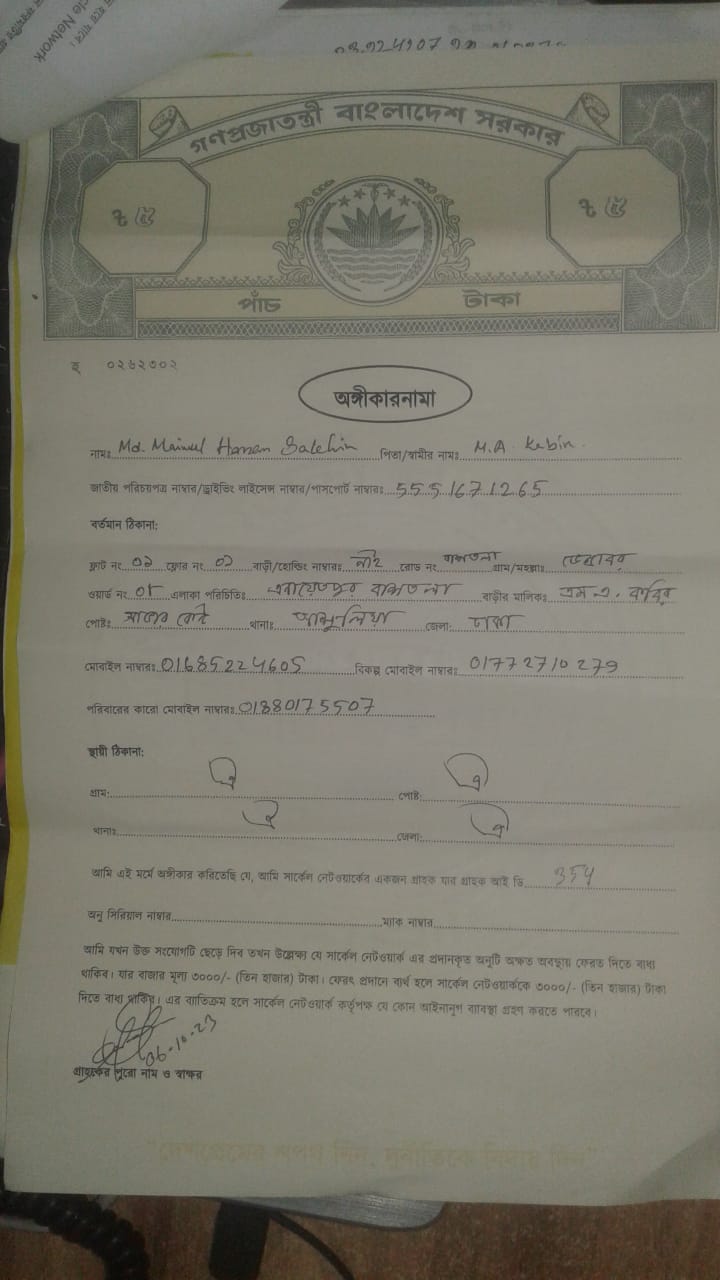 cle Network
গণপ্রজাতন্ত্রী বাংলাদেশ সরকার
৳ ৫ ৳ ৫
পাঁচ টাকা
হ ০২৬২৩০২
অঙ্গীকারনামা
নামঃ Md. Mainul Hassan Salehin পিতা/স্বামীর নামঃ M.A. Kabir.
জাতীয় পরিচয়পত্র নাম্বার/ড্রাইভিং লাইসেন্স নাম্বার/পাসপোর্ট নাম্বারঃ 5551671265
বর্তমান ঠিকানা:
ফ্লাট নং ০১ ফ্লোর নং ০১ বাড়ী/হোল্ডিং নাম্বারঃ নাই রোড নং বাশতলা গ্রাম/মহল্লাঃ
ওয়ার্ড নং ০৮ এলাকা পরিচিতিঃ এনায়েতপুর বাশতলা বাড়ীর মালিকঃ এম.এ. কবির
পোষ্টঃ থানাঃ আশুলিয়া জেলাঃ ঢাকা
মোবাইল নাম্বারঃ 01685224605 বিকল্প মোবাইল নাম্বারঃ 01772710279
পরিবারের কারো মোবাইল নাম্বারঃ 01880175507
স্থায়ী ঠিকানা:
গ্রাম: ঐ পোষ্ট: ঐ
থানাঃ ঐ জেলা: ঐ
আমি এই মর্মে অঙ্গীকার করিতেছি যে, আমি সার্কেল নেটওয়ার্কের একজন গ্রাহক যার গ্রাহক আই ডি 354
অনু সিরিয়াল নাম্বার ম্যাক নাম্বার
আমি যখন উক্ত সংযোগটি ছেড়ে দিব তখন উল্লেক্ষ্য যে সার্কেল নেটওয়ার্ক এর প্রদানকৃত অনুটি অক্ষত অবস্থায় ফেরত দিতে বাধ্য
থাকিব। যার বাজার মূল্য ৩০০০/- (তিন হাজার) টাকা। ফেরৎ প্রদানে ব্যর্থ হলে সার্কেল নেটওয়ার্ককে ৩০০০/- (তিন হাজার) টাকা
দিতে বাধ্য থাকিব। এর ব্যতিক্রম হলে সার্কেল নেটওয়ার্ক কর্তৃপক্ষ যে কোন আইনানুগ ব্যাবস্থা গ্রহণ করতে পারবে।
06-10-23
গ্রাহকের পুরো নাম ও স্বাক্ষর
"দেশপ্রেমের শপথ নিন, দুর্নীতিকে বিদায় দিন"